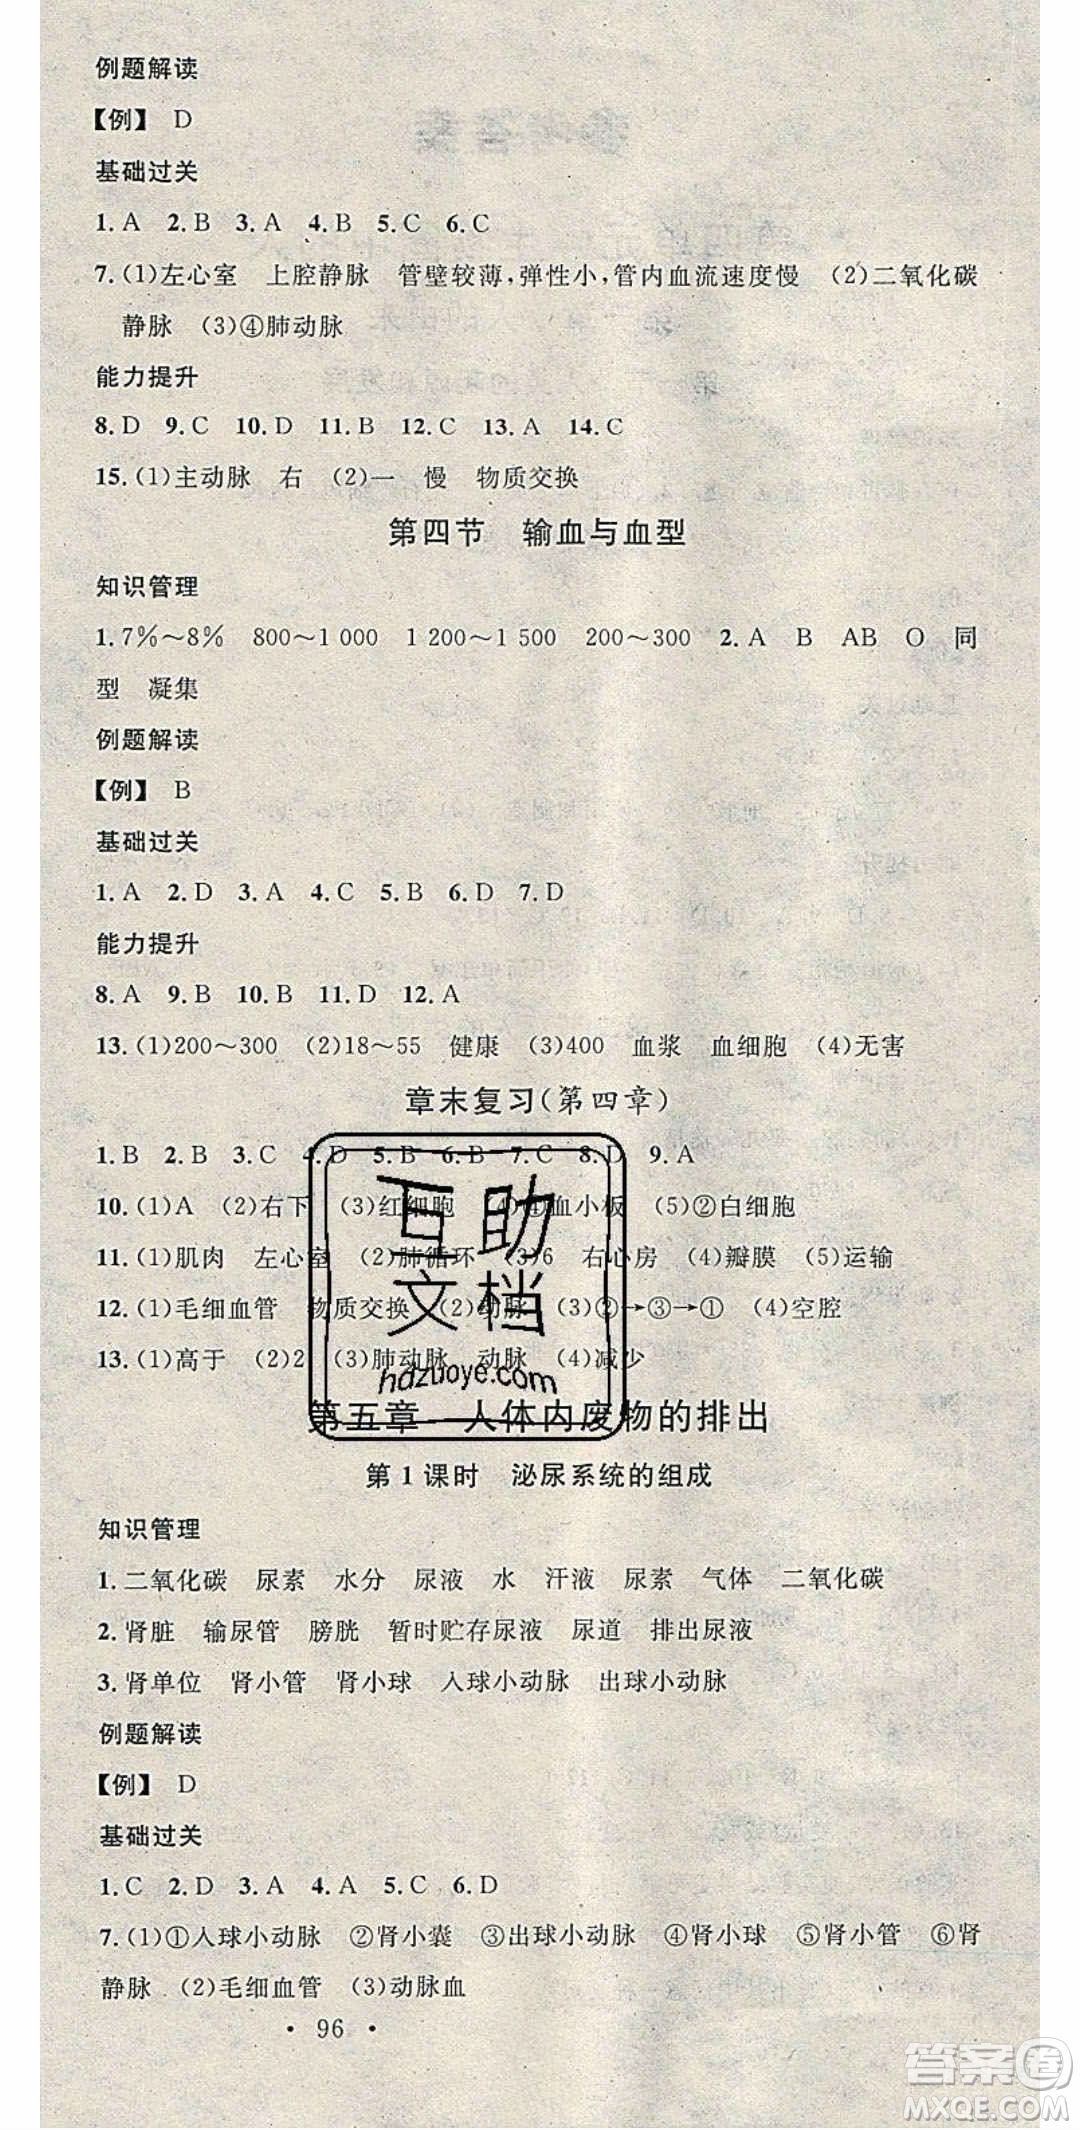 例题解读
【例】 D
基础过关
1. A 2. B 3. A 4. B 5. C 6. C
7. (1)左心室 上腔静脉 管壁较薄,弹性小,管内血流速度慢 (2)二氧化碳
静脉 (3)④肺动脉
能力提升
8. D 9. C 10. D 11. B 12. C 13. A 14. C
15. (1)主动脉 右 (2)一 慢 物质交换
第四节 输血与血型
知识管理
1. 7%～8% 800～1 000 1 200～1 500 200～300 2. A B AB O 同
型 凝集
例题解读
【例】 B
基础过关
1. A 2. D 3. A 4. B 5. B 6. D 7. D
能力提升
8. A 9. B 10. B 11. D 12. A
13. (1)200～300 (2)18～55 健康 (3)400 血浆 血细胞 (4)无害
章末复习(第四章)
1. B 2. B 3. C 4. D 5. B 6. B 7. C 8. D 9. A
10. (1)A (2)右下 (3)红细胞 (4)④血小板 (5)②白细胞
11. (1)肌肉 左心室 (2)肺循环 (3)6 右心房 (4)瓣膜 (5)运输
12. (1)毛细血管 物质交换 (2)动脉 (3)②→③→① (4)空腔
13. (1)高于 (2)2 (3)肺动脉 动脉 (4)减少
互助
文档
hdzuoye.com
第五章 人体内废物的排出
第 1 课时 泌尿系统的组成
知识管理
1. 二氧化碳 尿素 水分 尿液 水 汗液 尿素 气体 二氧化碳
2. 肾脏 输尿管 膀胱 暂时贮存尿液 尿道 排出尿液
3. 肾单位 肾小管 肾小球 入球小动脉 出球小动脉
例题解读
【例】 D
基础过关
1. C 2. D 3. A 4. A 5. C 6. D
7. (1)①入球小动脉 ②肾小囊 ③出球小动脉 ④肾小球 ⑤肾小管 ⑥肾
静脉 (2)毛细血管 (3)动脉血
• 96 •
答案圈
MXQE.COM